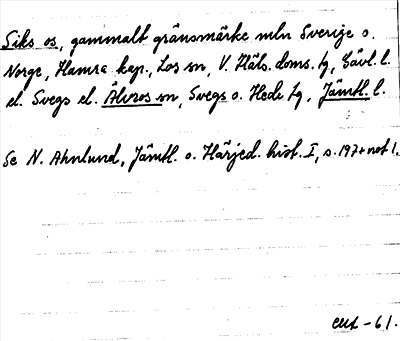 Siks os, gammalt gränsmärke mln Sverige o.
Norge, Hamra kap., Los sn, V. Häls. doms. tg, Gävl. l.
el. Svegs el. Älvros sn, Svegs o. Hede tg, Jämtl. l.
Se N. Ahnlund, Jämtl. o. Härjed. hist. I, s. 197 + not 1.
CUL - 61.